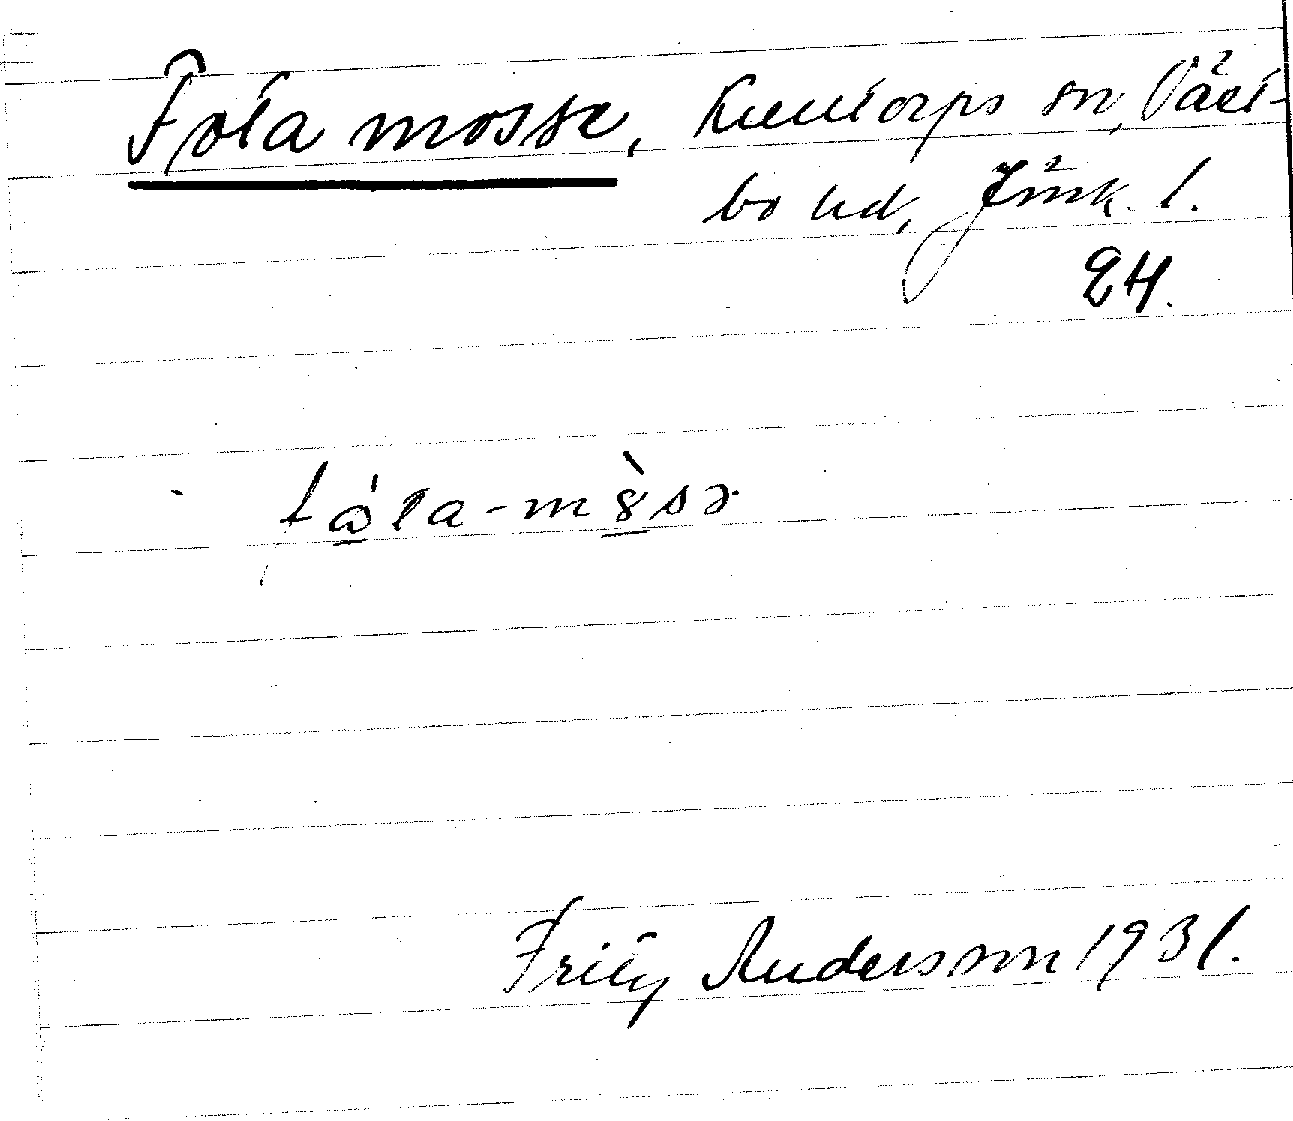 Fola mosse, Kulltorps sn, Väst-
bo hd, Jönk. l.
24.
fola-møsə
Fritz Anderson 1931.